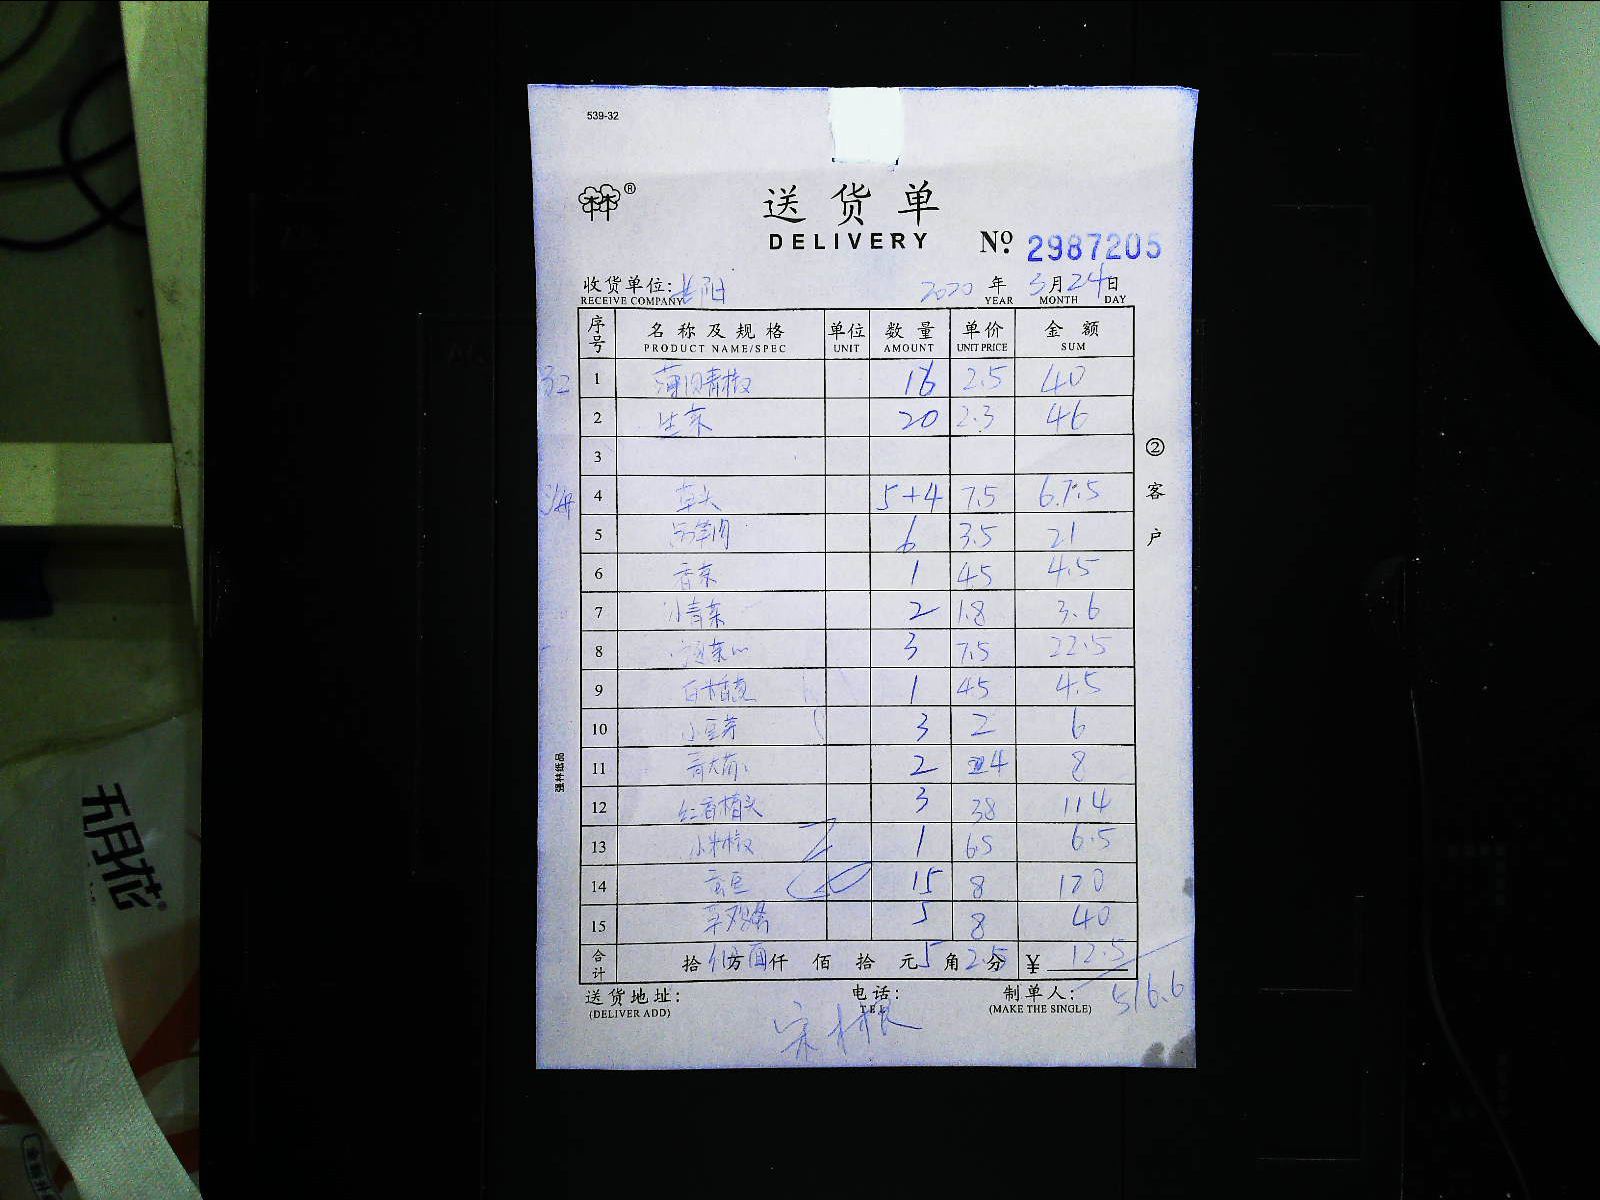 539-32
®
送货单
DELIVERY
No. 2987205
收货单位:
RECEIVE COMPANY
2020 年 3月24日
YEAR MONTH DAY
序号 名称及规格 单位 数量 单价 金额
PRODUCT NAME/SPEC UNIT AMOUNT UNIT PRICE SUM
1 青椒 16 2.5 40
2 生菜 20 2.3 46
3
4 草头 5+4 7.5 67.5
5 6 3.5 21
6 香菜 1 4.5 4.5
7 小青菜 2 1.8 3.6
8 3 7.5 22.5
9 1 4.5 4.5
10 小豆芽 3 2 6
11 2 4 8
12 3 38 114
13 小米椒 1 6.5 6.5
14 15 8 120
15 5 8 40
合计 拾 万 仟 佰 拾 元 5 角 2.5 分 ¥ 12.5
516.6
送货地址:
(DELIVER ADD)
电话:
TEL
制单人:
(MAKE THE SINGLE)
②客户
强林纸品
五月花